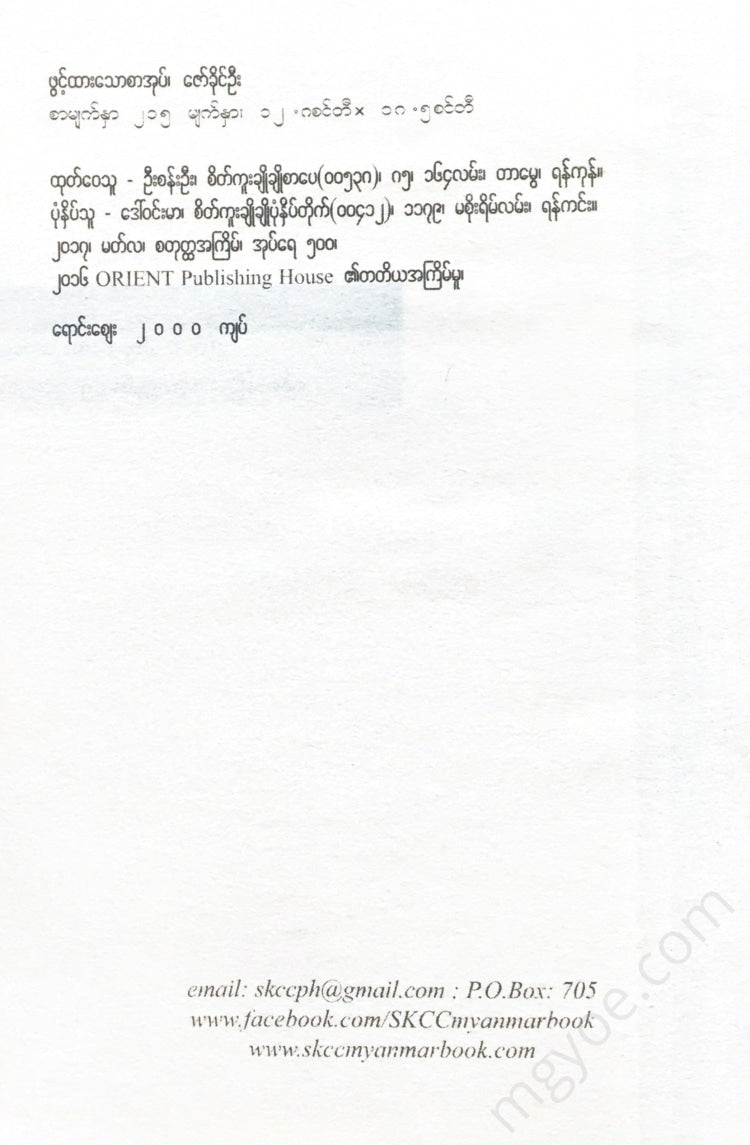 ဖွင့်ထားသောစာအုပ်၊ ဇော်ခိုင်ဦး
စာမျက်နှာ ၂၁၅ မျက်နှာ၊ ၁၂.၈စင်တီ× ၁၈.၅စင်တီ
ထုတ်ဝေသူ - ဦးစန်းဦး၊ စိတ်ကူးချိုချိုစာပေ(၀၀၅၃၈)၊ ၈၅၊ ၁၆၄လမ်း၊ တာမွေ၊ ရန်ကုန်။
ပုံနှိပ်သူ - ဒေါ်ဝင်းမာ၊ စိတ်ကူးချိုချိုပုံနှိပ်တိုက်(၀၀၄၁၂)၊ ၁၁၇၉၊ မစိုးရိမ်လမ်း၊ ရန်ကင်း။
၂၀၁၇၊ မတ်လ၊ စတုတ္ထအကြိမ်၊ အုပ်ရေ ၅၀၀၊
၂၀၁၆ ORIENT Publishing House ၏တတိယအကြိမ်မူ၊
ရောင်းဈေး ၂၀၀၀ ကျပ်
email: skccph@gmail.com : P.O.Box: 705
www.facebook.com/SKCCmyanmarbook
www.skccmyanmarbook.com
mgyoe.com